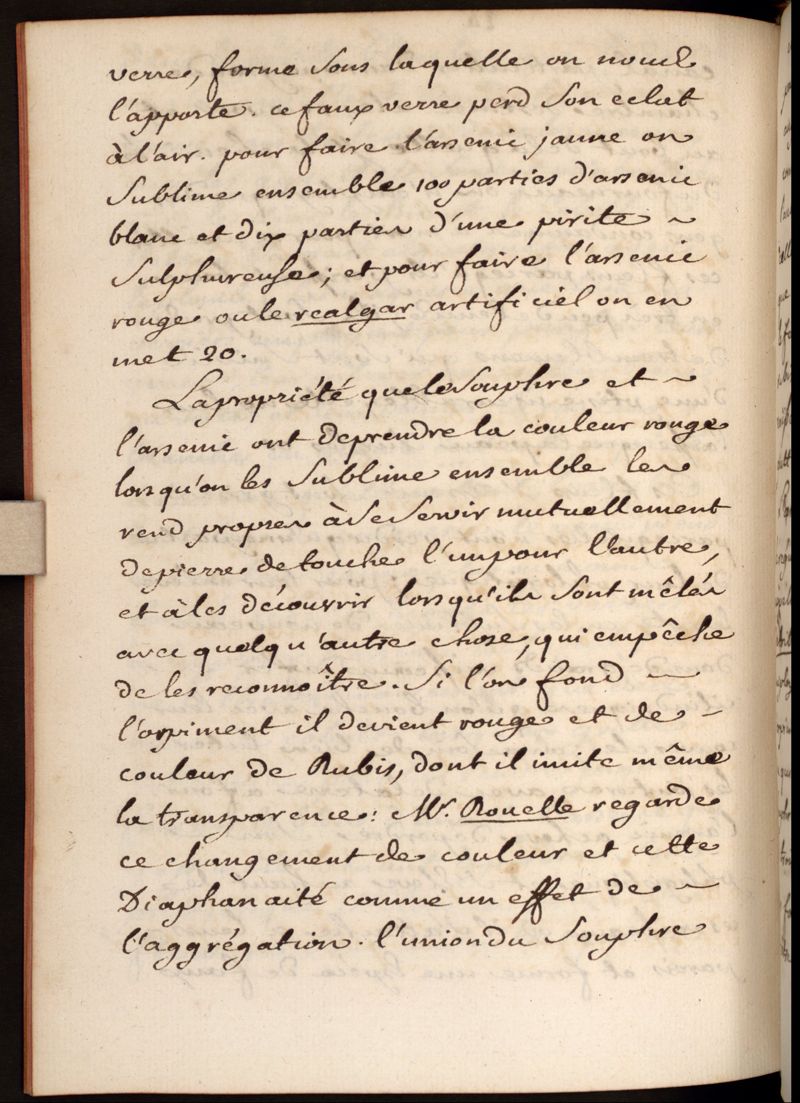 verre, forme sous laquelle on nous
l'apporte. ce faux verre perd son eclat
à l'air. pour faire l'arsenic jaune on
sublime ensemble 100 parties d'arsenic
blanc et dix parties d'une pirite ~
sulphureuse; et pour faire l'arsenic
rouge ou le realgar artificiel on en
met 20.
La propriété que le souphre et ~
l'arsenic ont de prendre la couleur rouge
lorsqu'on les sublime ensemble les
rend propres à se servir mutuellement
de pierre de touche l'un pour l'autre,
et à les découvrir lorsqu'ils sont mêlés
avec quelqu'autre chose, qui empêche
de les reconnoître. Si l'on fond ~
l'orpiment il devient rouge et de ~
couleur de Rubis, dont il imite même
la transparence: Mr. Rouelle regarde
ce changement de couleur et cette
Diaphanaité comme un effet de ~
l'aggrégation. l'union du souphre